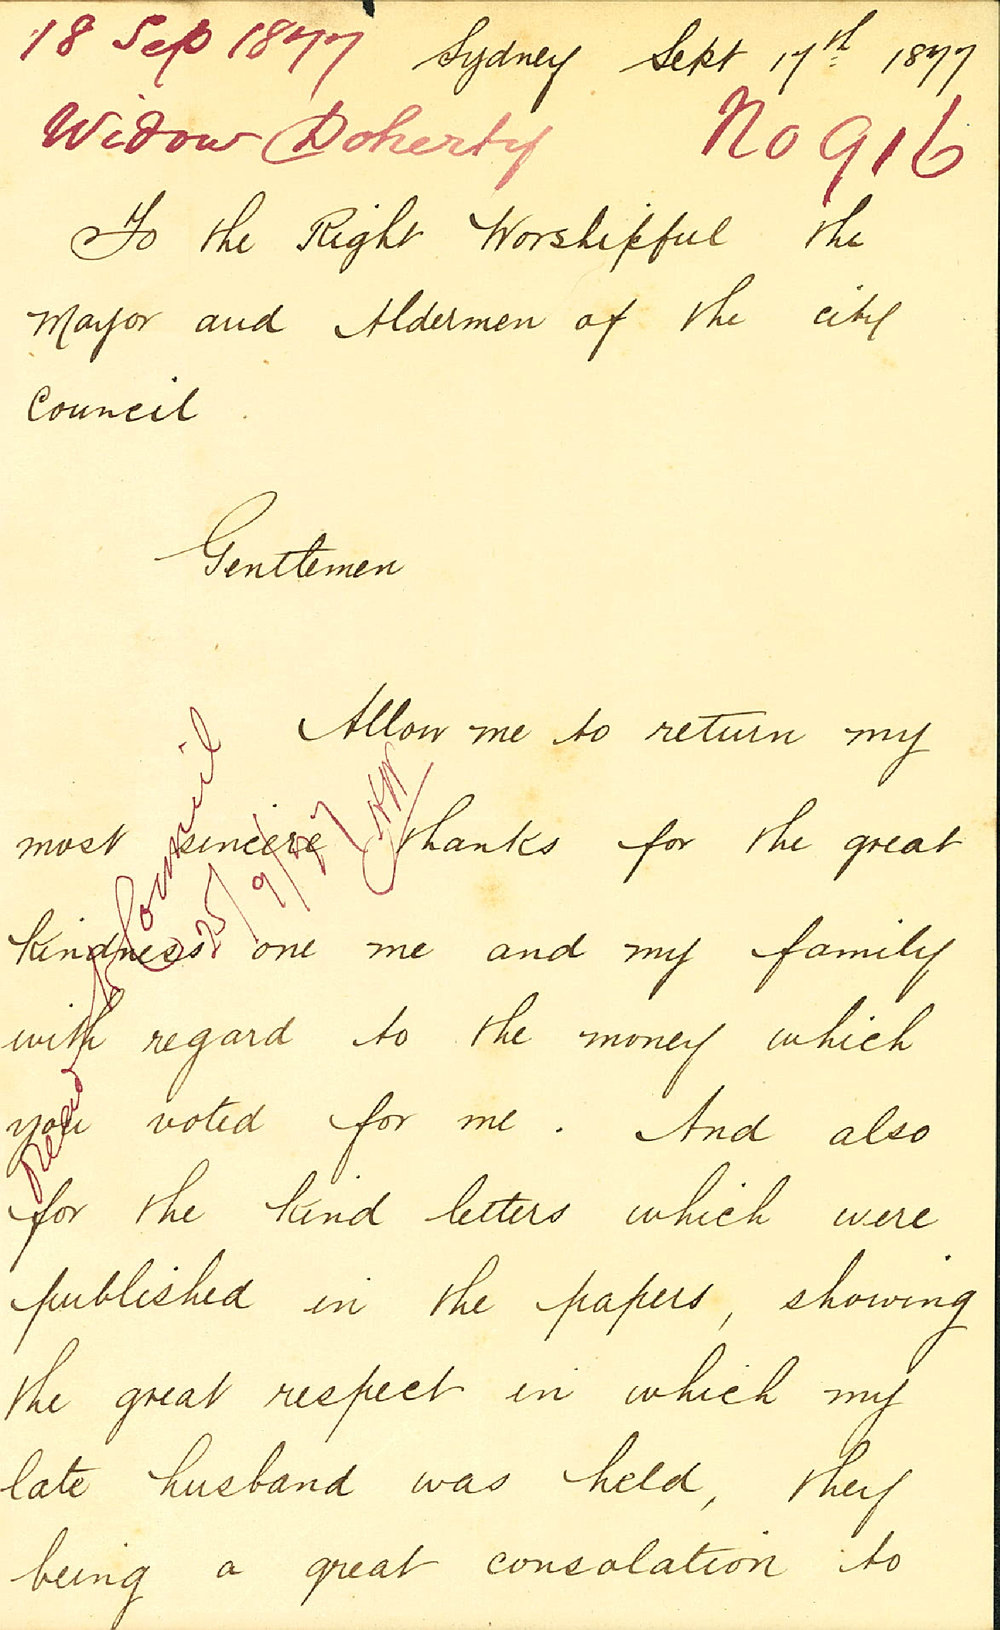 18 Sep 1877 Sydney Sept 17th 1877
Widow Doherty No 916
To the Right Worshipful the
Mayor and Aldermen of the city
Council.
Gentlemen
Allow me to return my
most sincere thanks for the great
kindness one me and my family
with regard to the money which
you voted for me. And also
for the kind letters which were
published in the papers, showing
the great respect in which my
late husband was held, they
being a great consolation to
Read to Council
25/9/77